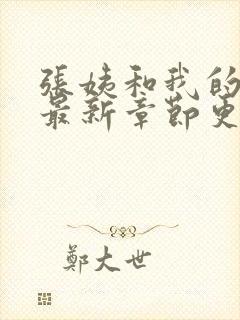 張姨和我的
最新章節更
鄭大世